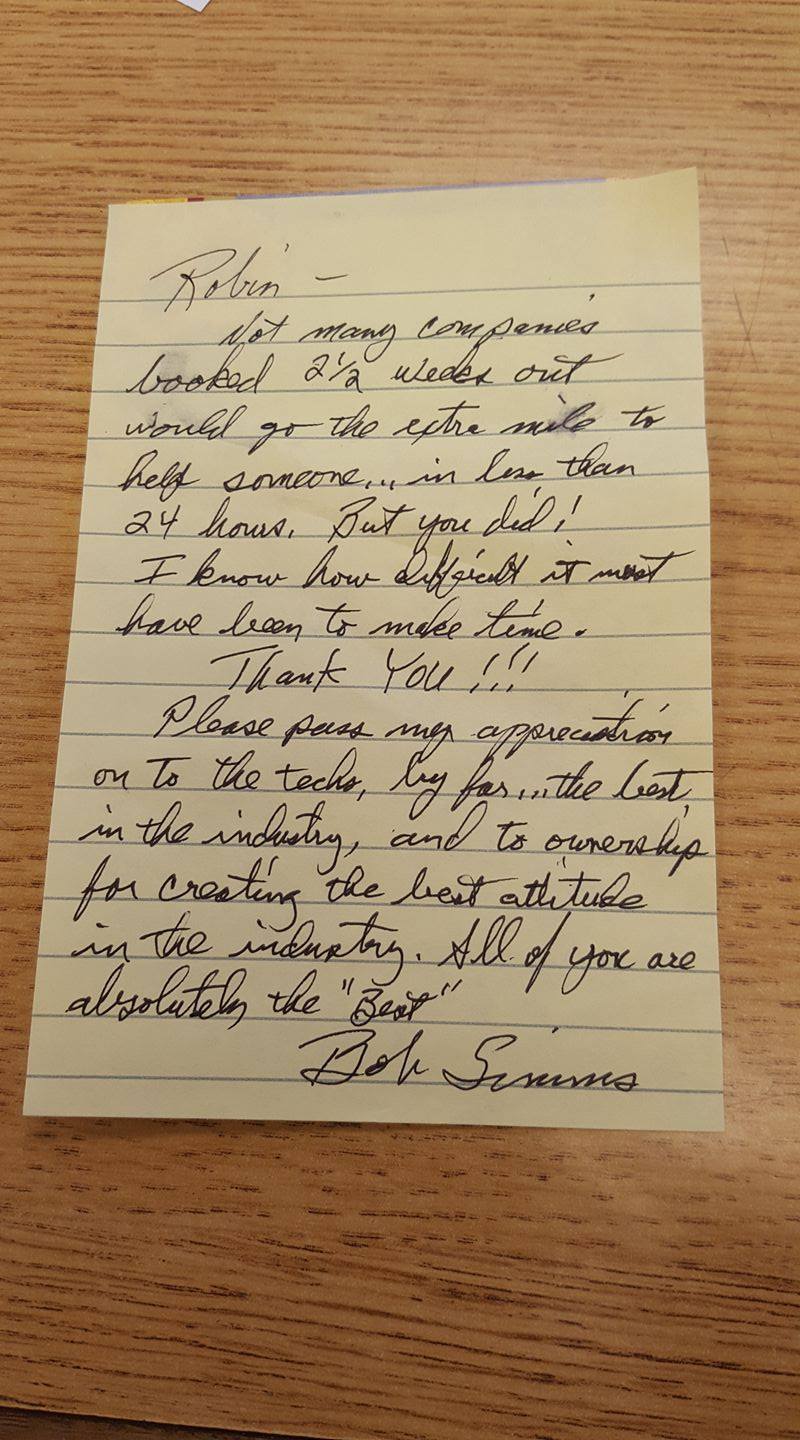 Robin –
Not many companies
booked 2 1/2 weeks out
would go the extra mile to
help someone... in less than
24 hours. But you did!
I know how difficult it must
have been to make time.
Thank You!!!
Please pass my appreciation
on to the techs, by far...the best
in the industry, and to ownership
for creating the best attitude
in the industry. All of you are
absolutely the "Best"
Bob Simms